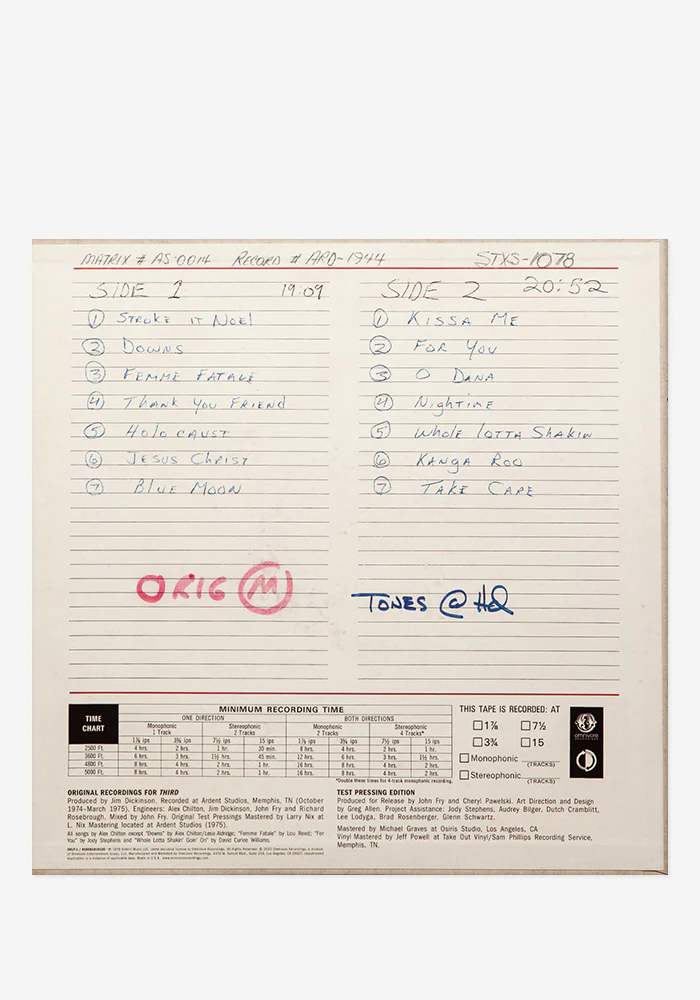 MATRIX # AS-0014 RECORD # ARD-1944 STXS-1078
SIDE 1 19:09
① STROKE IT NOEL
② DOWNS
③ FEMME FATALE
④ THANK YOU FRIEND
⑤ HOLOCAUST
⑥ JESUS CHRIST
⑦ BLUE MOON
ORIG Ⓜ
SIDE 2 20:52
① KISSA ME
② FOR YOU
③ O DANA
④ NighTiME
⑤ WHOLE LOTTA SHAKIN
⑥ KANGA ROO
⑦ TAKE CARE
TONES @ Hd
TIME CHART
MINIMUM RECORDING TIME
ONE DIRECTION BOTH DIRECTIONS
Monophonic 1 Track Stereophonic 2 Tracks Monophonic 2 Tracks Stereophonic 4 Tracks*
1⅞ ips 3¾ ips 7½ ips 15 ips 1⅞ ips 3¾ ips 7½ ips 15 ips
2500 Ft. 4 hrs. 2 hrs. 1 hr. 30 min. 8 hrs. 4 hrs. 2 hrs. 1 hr.
3600 Ft. 6 hrs. 3 hrs. 1½ hrs. 45 min. 12 hrs. 6 hrs. 3 hrs. 1½ hrs.
4800 Ft. 8 hrs. 4 hrs. 2 hrs. 1 hr. 16 hrs. 8 hrs. 4 hrs. 2 hrs.
5000 Ft. 8 hrs. 4 hrs. 2 hrs. 1 hr. 16 hrs. 8 hrs. 4 hrs. 2 hrs.
*Double these times for 4-track monophonic recording.
THIS TAPE IS RECORDED: AT
1⅞ 7½
3¾ 15
Monophonic (TRACKS)
Stereophonic (TRACKS)
omnivore
RECORDINGS
ORIGINAL RECORDINGS FOR THIRD
Produced by Jim Dickinson. Recorded at Ardent Studios, Memphis, TN (October
1974-March 1975). Engineers: Alex Chilton, Jim Dickinson, John Fry and Richard
Rosebrough. Mixed by John Fry. Original Test Pressings Mastered by Larry Nix at
L. Nix Mastering located at Ardent Studios (1975).
All songs by Alex Chilton except "Downs" by Alex Chilton/Lesa Aldridge; "Femme Fatale" by Lou Reed; "For
You" by Jody Stephens and "Whole Lotta Shakin' Goin' On" by David Curlee Williams.
TEST PRESSING EDITION
Produced for Release by John Fry and Cheryl Pawelski. Art Direction and Design
by Greg Allen. Project Assistance: Jody Stephens, Audrey Bilger, Dutch Cramblitt,
Lee Lodyga, Brad Rosenberger, Glenn Schwartz.
Mastered by Michael Graves at Osiris Studio, Los Angeles, CA
Vinyl Mastered by Jeff Powell at Take Out Vinyl/Sam Phillips Recording Service,
Memphis, TN.